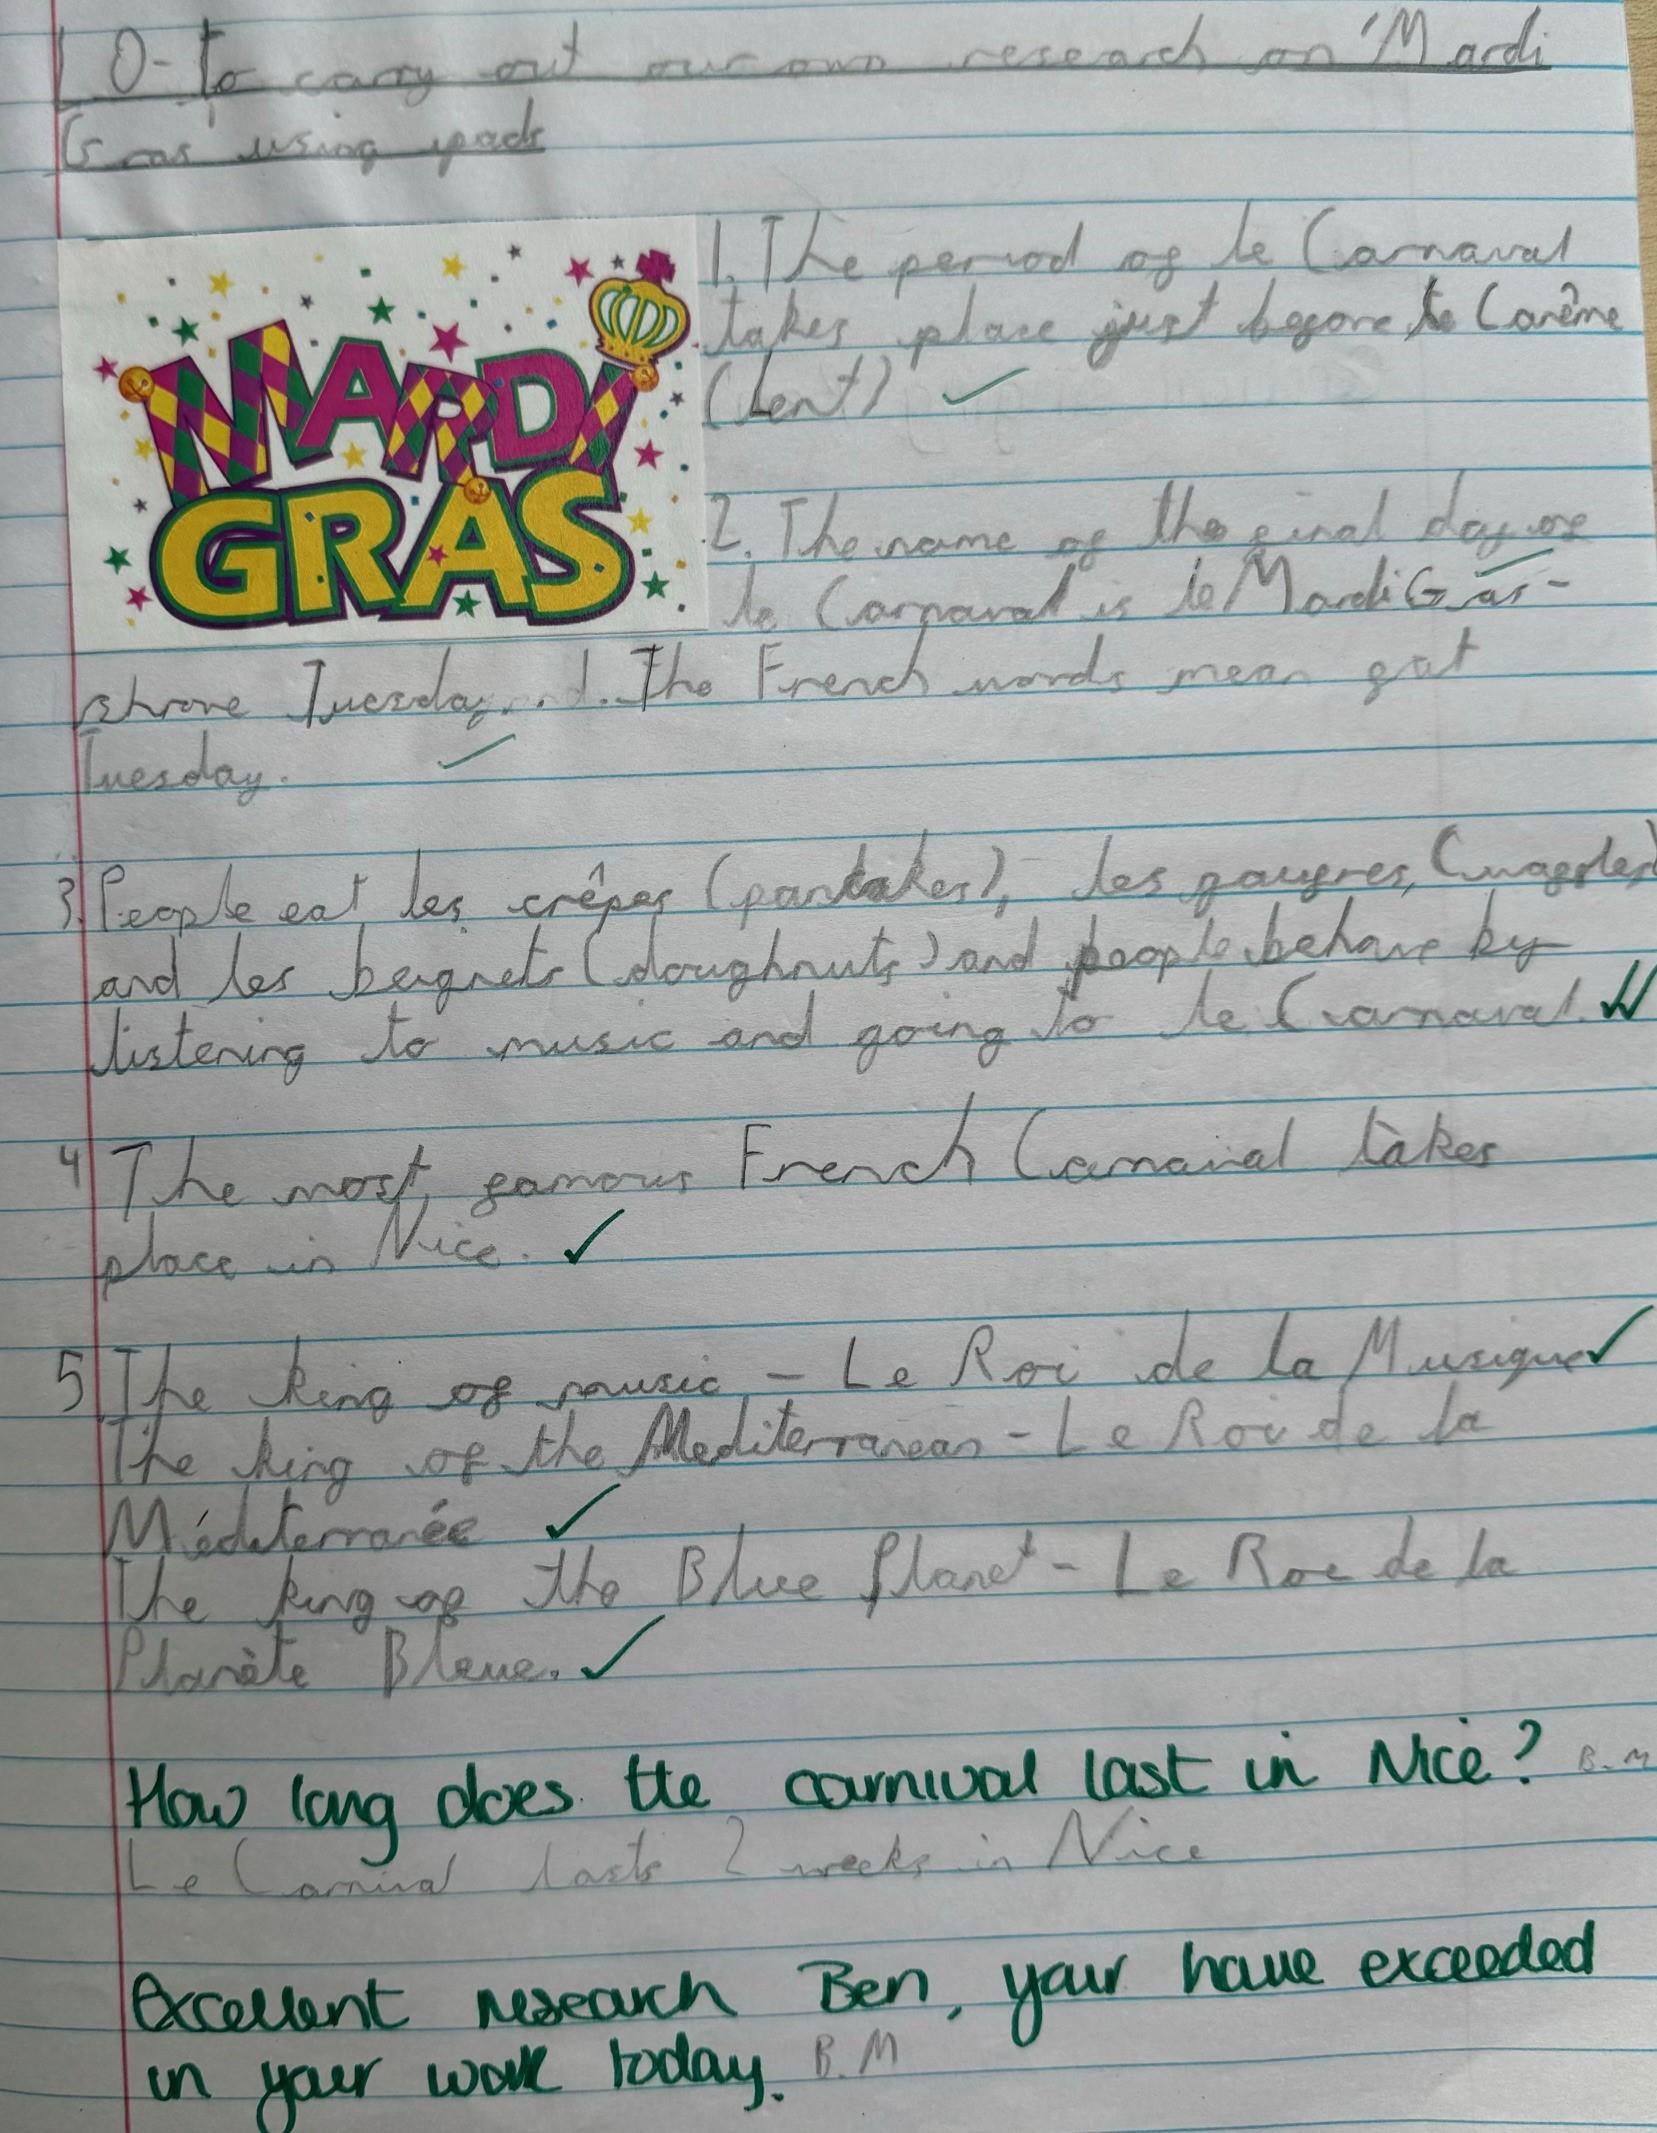 LO- To carry out our own research on 'Mardi
Gras' using ipads
MARDI
GRAS
1. The period of le Carnaval
takes place just before le Carême
(Lent)
2. The name of the final day of
le Carnaval is le Mardi Gras -
shrove Tuesday. The French words mean fat
Tuesday.
3. People eat les crêpes (pancakes), les gaufres, (waffles)
and les beignets (doughnuts) and people behave by
listening to music and going to le Carnaval.
4 The most famous French Carnaval takes
place in Nice.
5 The king of music - Le Roi de la Musique
The king of the Mediterranean - Le Roi de la
Méditerranée
The king of the Blue Planet - Le Roi de la
Planète Bleue.
How long does the carnival last in Nice? B.M
Le Carnival lasts 2 weeks in Nice
Excellent research Ben, your have exceeded
in your work today. B.M